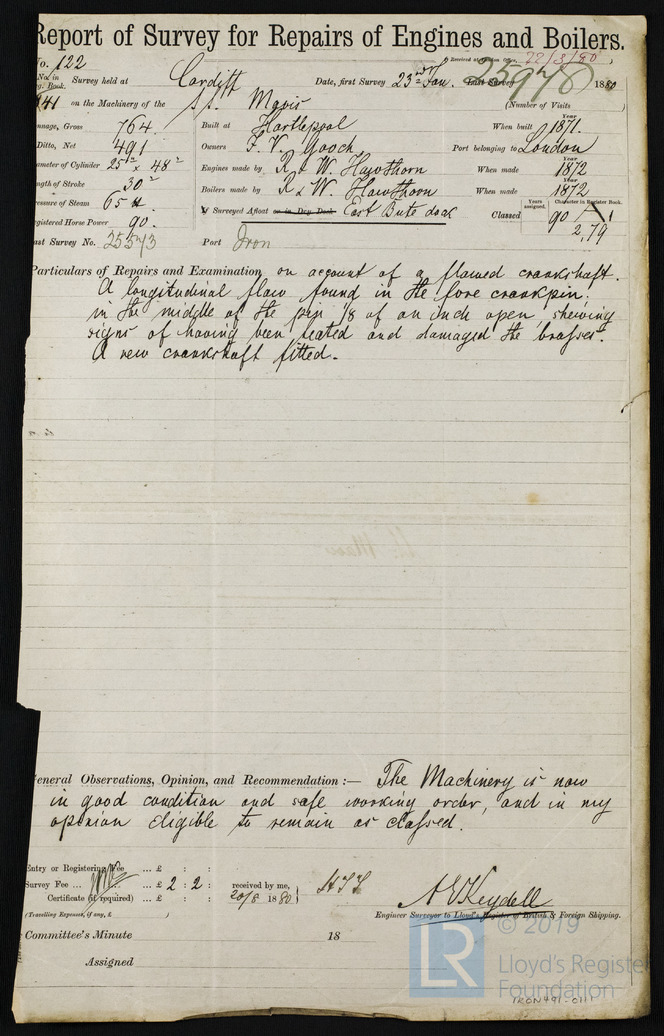 Report of Survey for Repairs of Engines and Boilers.
No. 122
Received at London Office, 22/3/80
No. in Reg. Book. Survey held at Cardiff Date, first Survey 23rd Jan. Last Survey 1880
941 on the Machinery of the s.s. Mavis (Number of Visits )
Tonnage, Gross 764. Built at Hartlepool When built 1871.
Ditto, Net 491 Owners F. V. Gooch Port belonging to London
Diameter of Cylinder 25" x 48" Engines made by R & W. Hawthorn When made 1872
Length of Stroke 30" Boilers made by R & W. Hawthorn When made 1872
Pressure of Steam 65 Surveyed Afloat or in Dry Dock East Bute dock Classed Years assigned. 90 Character in Register Book. A 1
Registered Horse Power 90. 2,79
Last Survey No. 25573 Port Iron
Particulars of Repairs and Examination, on account of a flawed crankshaft.
A longitudinal flaw found in the fore crankpin;
in the middle of the pin 1/8 of an inch open, shewing
signs of having been heated and damaged the brasses.
A new crankshaft fitted.
General Observations, Opinion, and Recommendation :— The Machinery is now
in good condition and safe working order, and in my
opinion eligible to remain as classed.
Entry or Registering Fee ... £ : :
Survey Fee ... ... £ 2 : 2 : received by me,
Certificate (if required) ... £ : : 20/3 1880
(Travelling Expenses, if any, £ )
A E Keydell
Engineer Surveyor to Lloyd's Register of British & Foreign Shipping.
Committee's Minute 18
Assigned
© 2019
LR Lloyd's Register
Foundation
IRON491-0111